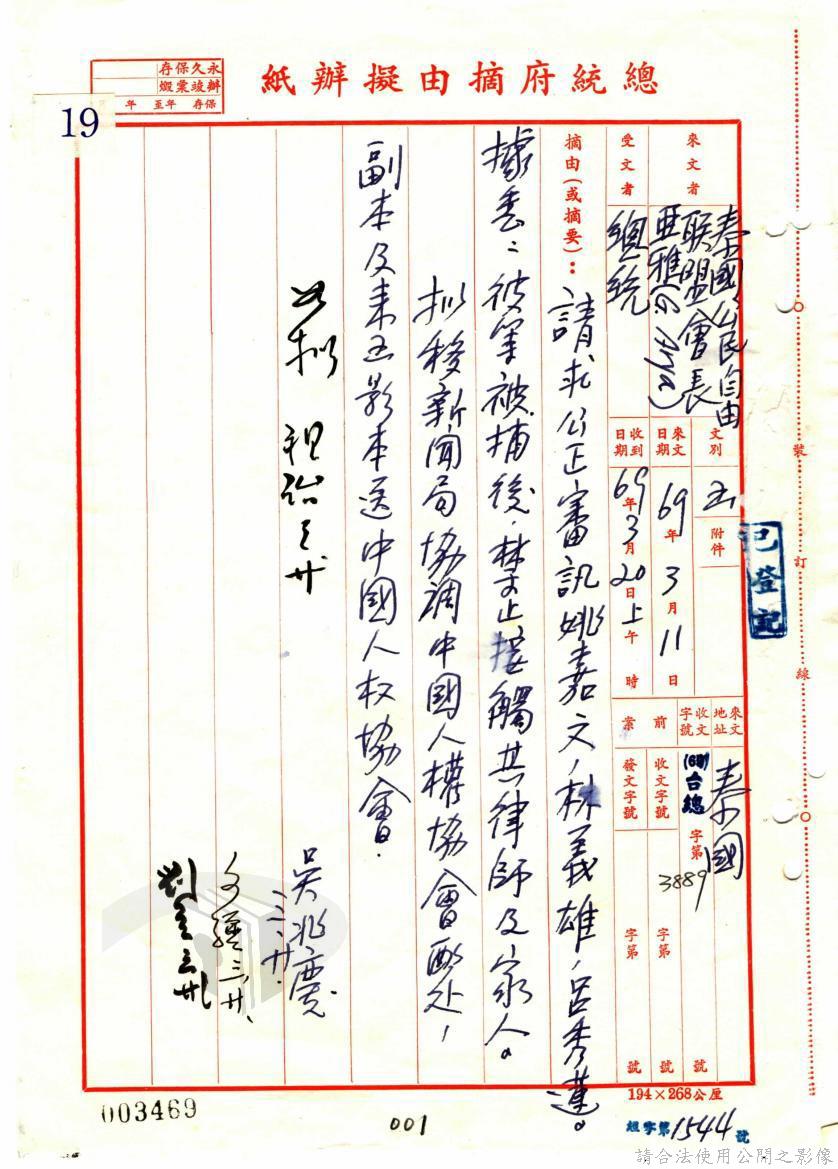 總統府摘由擬辦紙
永久保存
辦竣彙繳
保存 年至 年
19
來文者
泰國人民自由
聯盟會長
亞雅(G. Arya)
受文者
總統
文別
函
附件
來文日期
69年3月11日
收到日期
69年3月20日上午 時
來文地址
泰國
收文字號
(69)台總 字第 3889 號
前案
收文字號
字第 號
發文字號
字第 號
已登記
裝訂線
摘由(或摘要):
請求公正審訊姚嘉文,林義雄,呂秀蓮。
據悉:彼等被捕後,禁止接觸其律師及家人。
擬移新聞局協調中國人權協會酌處,
副本及來函影本送中國人权協會.
如擬
吳兆慶
三、廿.
三、廿、
194×268公厘
003469
001
組字第1544號
請合法使用公開之影像